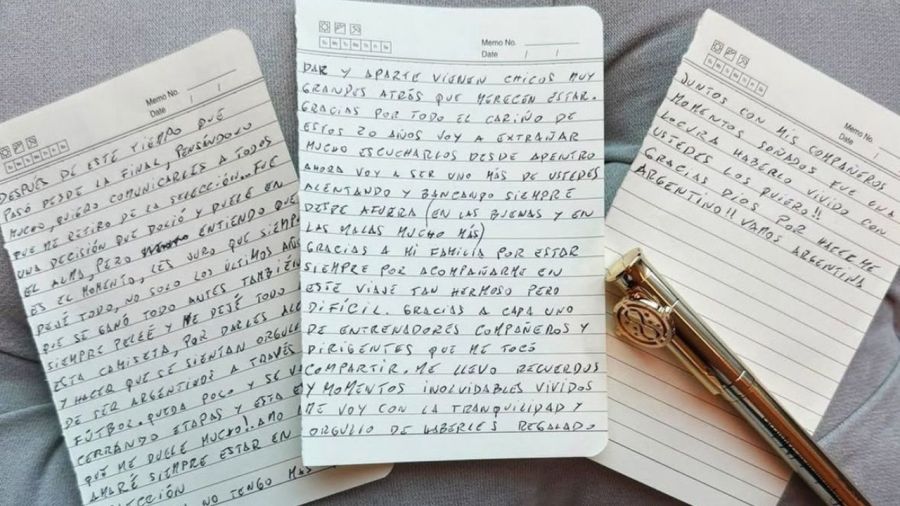 Memo No.
Date / /
DESPUÉS DE ESTE TIEMPO QUE
PASÓ DESDE LA FINAL, PENSANDOLO
MUCHO, QUIERO COMUNICARLES A TODOS
QUE ME RETIRO DE LA SELECCIÓN.. FUE
UNA DECISIÓN QUE DOLIÓ Y DUELE EN
EL ALMA, PERO ENTIENDO QUE
ES EL MOMENTO, LES JURO QUE SIEMP
DEJÉ TODO, NO SOLO LOS ÚLTIMOS AÑOS
QUE SE GANÓ TODO ANTES TAMBIÉN
SIEMPRE PELEÉ Y ME DEJÉ TODO
ESTA CAMISETA, POR DARLES ALE
Y HACER QUE SE SIENTAN ORGULL
DE SER ARGENTINOS A TRAVÉS
FÚTBOL. QUEDA POCO Y SE VA
CERRANDO ETAPAS Y ESTA ES
QUE ME DUELE MUCHO! AMO
AMARÉ SIEMPRE ESTAR EN
ECCIÓN
NO TENGO MÁS
Memo No.
Date / /
DAR Y APARTE VIENEN CHICOS MUY
GRANDES ATRÁS QUE MERECEN ESTAR.
GRACIAS POR TODO EL CARIÑO DE
ESTOS 20 AÑOS VOY A EXTRAÑAR
MUCHO ESCUCHARLOS DESDE ADENTRO
AHORA VOY A SER UNO MÁS DE USTEDES
ALENTANDO Y BANCANDO SIEMPRE
DESDE AFUERA (EN LAS BUENAS Y EN
LAS MALAS MUCHO MÁS)
GRACIAS A MI FAMILIA POR ESTAR
SIEMPRE POR ACOMPAÑARME EN
ESTE VIAJE TAN HERMOSO PERO
DIFÍCIL. GRACIAS A CADA UNO
DE ENTRENADORES COMPAÑEROS Y
DIRIGENTES QUE ME TOCÓ
COMPARTIR. ME LLEVO RECUERDOS
Y MOMENTOS INOLVIDABLES VIVIDOS
ME VOY CON LA TRANQUILIDAD Y
ORGULLO DE HABERLES REGALADO
Memo No.
Date / /
JUNTOS CON MIS COMPAÑEROS
MOMENTOS SOÑADOS FUE UNA
LOCURA HABERLO VIVIDO CON
USTEDES LOS QUIERO!!
GRACIAS DIOS POR HACERME
ARGENTINO!! VAMOS ARGENTINA